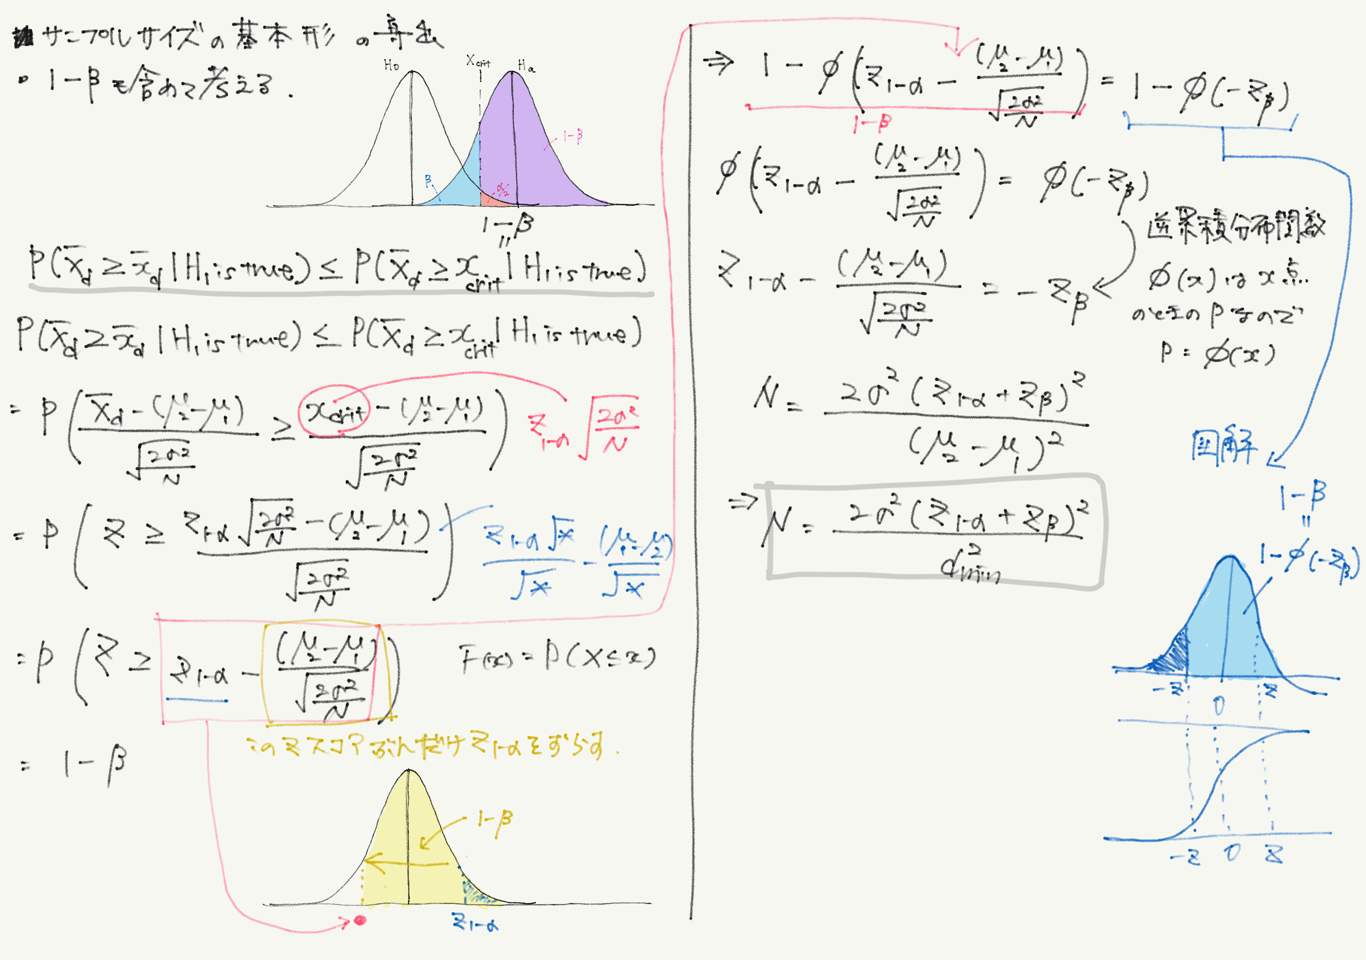 サンプルサイズの基本形の導出
・1-βも含めて考える.
H0 Xcrit Ha
1-β
β α/2
1-β
=
P(X̄d ≥ x̄d | H1 is true) ≤ P(X̄d ≥ xcrit | H1 is true)
P(X̄d ≥ x̄d | H1 is true) ≤ P(X̄d ≥ xcrit | H1 is true)
= P( (X̄d - (μ2-μ1)) / √(2σ²/N) ≥ (xcrit - (μ2-μ1)) / √(2σ²/N) ) z1-α √(2σ²/N)
= P( Z ≥ (z1-α √(2σ²/N) - (μ2-μ1)) / √(2σ²/N) ) z1-α√x / √x - (μ1-μ2) / √x
= P( Z ≥ z1-α - (μ2-μ1) / √(2σ²/N) ) F(x) = P(X ≤ x)
このZスコアぶんだけz1-αをずらす.
= 1-β
1-β
z1-α
⇒ 1 - φ( z1-α - (μ2-μ1) / √(2σ²/N) ) = 1 - φ(-zβ)
1-β
φ( z1-α - (μ2-μ1) / √(2σ²/N) ) = φ(-zβ)
逆累積分布関数
z1-α - (μ2-μ1) / √(2σ²/N) = -zβ
φ(x)はx点
のときのPなので
P = φ(x)
N = 2σ²(z1-α + zβ)² / (μ2-μ1)²
図解
⇒ N = 2σ²(z1-α + zβ)² / d²min
1-β
=
1-φ(-zβ)
-z 0 z
-z 0 z